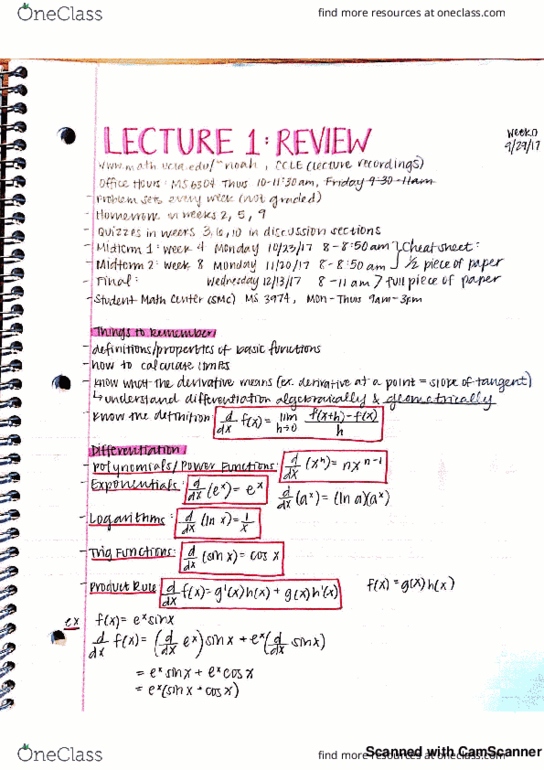 OneClass
find more resources at oneclass.com
LECTURE 1: REVIEW
Week 0
9/29/17
www.math.ucla.edu/~noah, CCLE (lecture recordings)
Office Hours: MS 6304 Thurs 10-11:30am, Friday 9:30-11am
- Problem sets every week (not graded)
- Homework in weeks 2, 5, 9
- Quizzes in weeks 3, 6, 10 in discussion sections
- Midterm 1: Week 4 Monday 10/23/17 8-8:50am } Cheat sheet:
- Midterm 2: Week 8 Monday 11/20/17 8-8:50am } 1/2 piece of paper
- Final: Wednesday 12/13/17 8-11am > full piece of paper
- Student Math Center (SMC) MS 3974, Mon-Thurs 9am-3pm
Things to Remember:
- definitions/properties of basic functions
- how to calculate limits
- know what the derivative means (ex. derivative at a point = slope of tangent)
↳ understand differentiation algebraically & geometrically
- know the definition: d/dx f(x) = lim h→0 f(x+h)-f(x)/h
Differentiation
- Polynomials/Power Functions: d/dx (xⁿ) = nxⁿ⁻¹
- Exponentials: d/dx (eˣ) = eˣ d/dx (aˣ) = (ln a)(aˣ)
- Logarithms: d/dx (ln x) = 1/x
- Trig Functions: d/dx (sin x) = cos x
- Product Rule: d/dx f(x) = g'(x)h(x) + g(x)h'(x) f(x) = g(x)h(x)
ex f(x) = eˣ sin x
d/dx f(x) = (d/dx eˣ) sin x + eˣ (d/dx sin x)
= eˣ sin x + eˣ cos x
= eˣ (sin x + cos x)
Scanned with CamScanner
OneClass
find more resources at oneclass.com